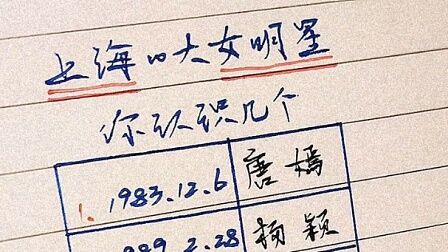 上海四大女明星
你认识几个
1. 1983.12.6 唐嫣
1989.2.28 杨颖